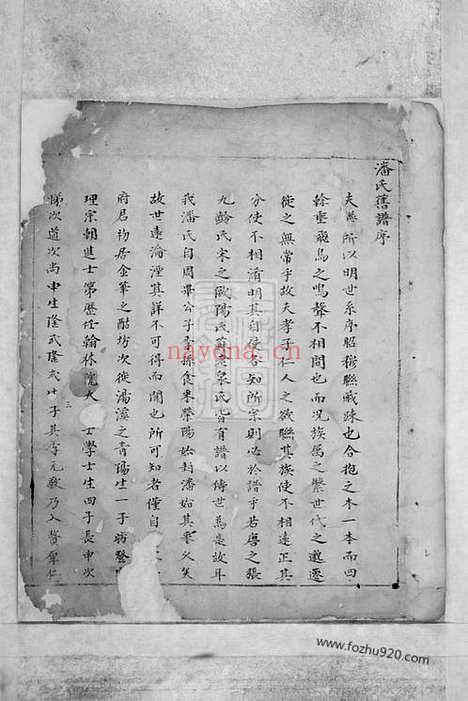 潘氏舊譜序
夫譜所以明世系序昭穆聯戚疎也合抱之木一本而四
幹壑飛鳥之鳴聲不相間也而况族属之繁世代之遷
徙之無常乎故夫孝子仁人之欲聯其族使不相遠正其
分使不相淆明其自使各知所宗則必於譜乎若唐之張
九齡氏宋之歐陽氏蘇氏皆有譜以傳世為是故耳
我潘氏自周畢公子季孫食采滎陽始封潘始其來久矣
故世遠淪湮其詳不可得而聞也所可知者僅自
府君初居金華之酤坊次徙湯溪之青陽生一子諱登
理宗朝進士第歷任翰林院大士學士生四子長申次
悌次道次尚申生隆武隆武生子其季元敎乃入贅
nayona.cn
www.fozhu920.com